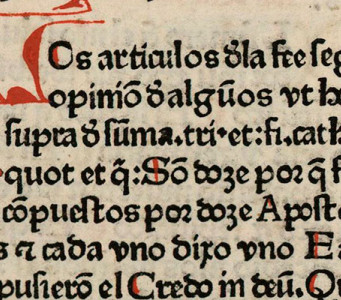 Los articulos đla fee seg
opiniõ đ algũos vt h
supra đ sũma.tri·et:fi.cath
quot et q̃:Sõ doze por q̃ f
cõpuestos por doze Apost
s ⁊ cada vno dixo vno E
pusierõ el Credo in deũ. Qu